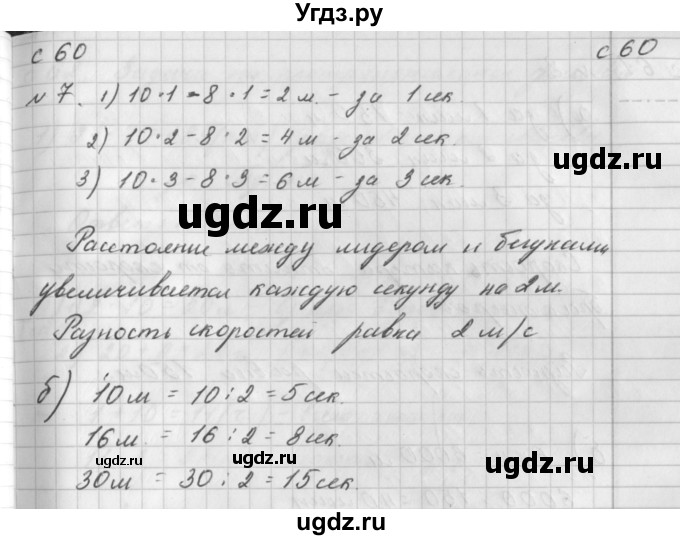 Угдз.ру
с 60
с 60
№ 7. 1) 10 · 1 - 8 · 1 = 2 м. - за 1 сек.
2) 10 · 2 - 8 · 2 = 4 м - за 2 сек.
3) 10 · 3 - 8 · 3 = 6 м - за 3 сек.
ugdz.ru
ugdz.ru
Расстояние между лидером и бегунами
увеличивается каждую секунду на 2 м.
Разность скоростей равна 2 м/с
б) 10 м = 10 : 2 = 5 сек.
16 м. = 16 : 2 = 8 сек.
ugdz.ru
ugdz.ru
ugdz.ru
30 м = 30 : 2 = 15 сек.
ugdz.ru